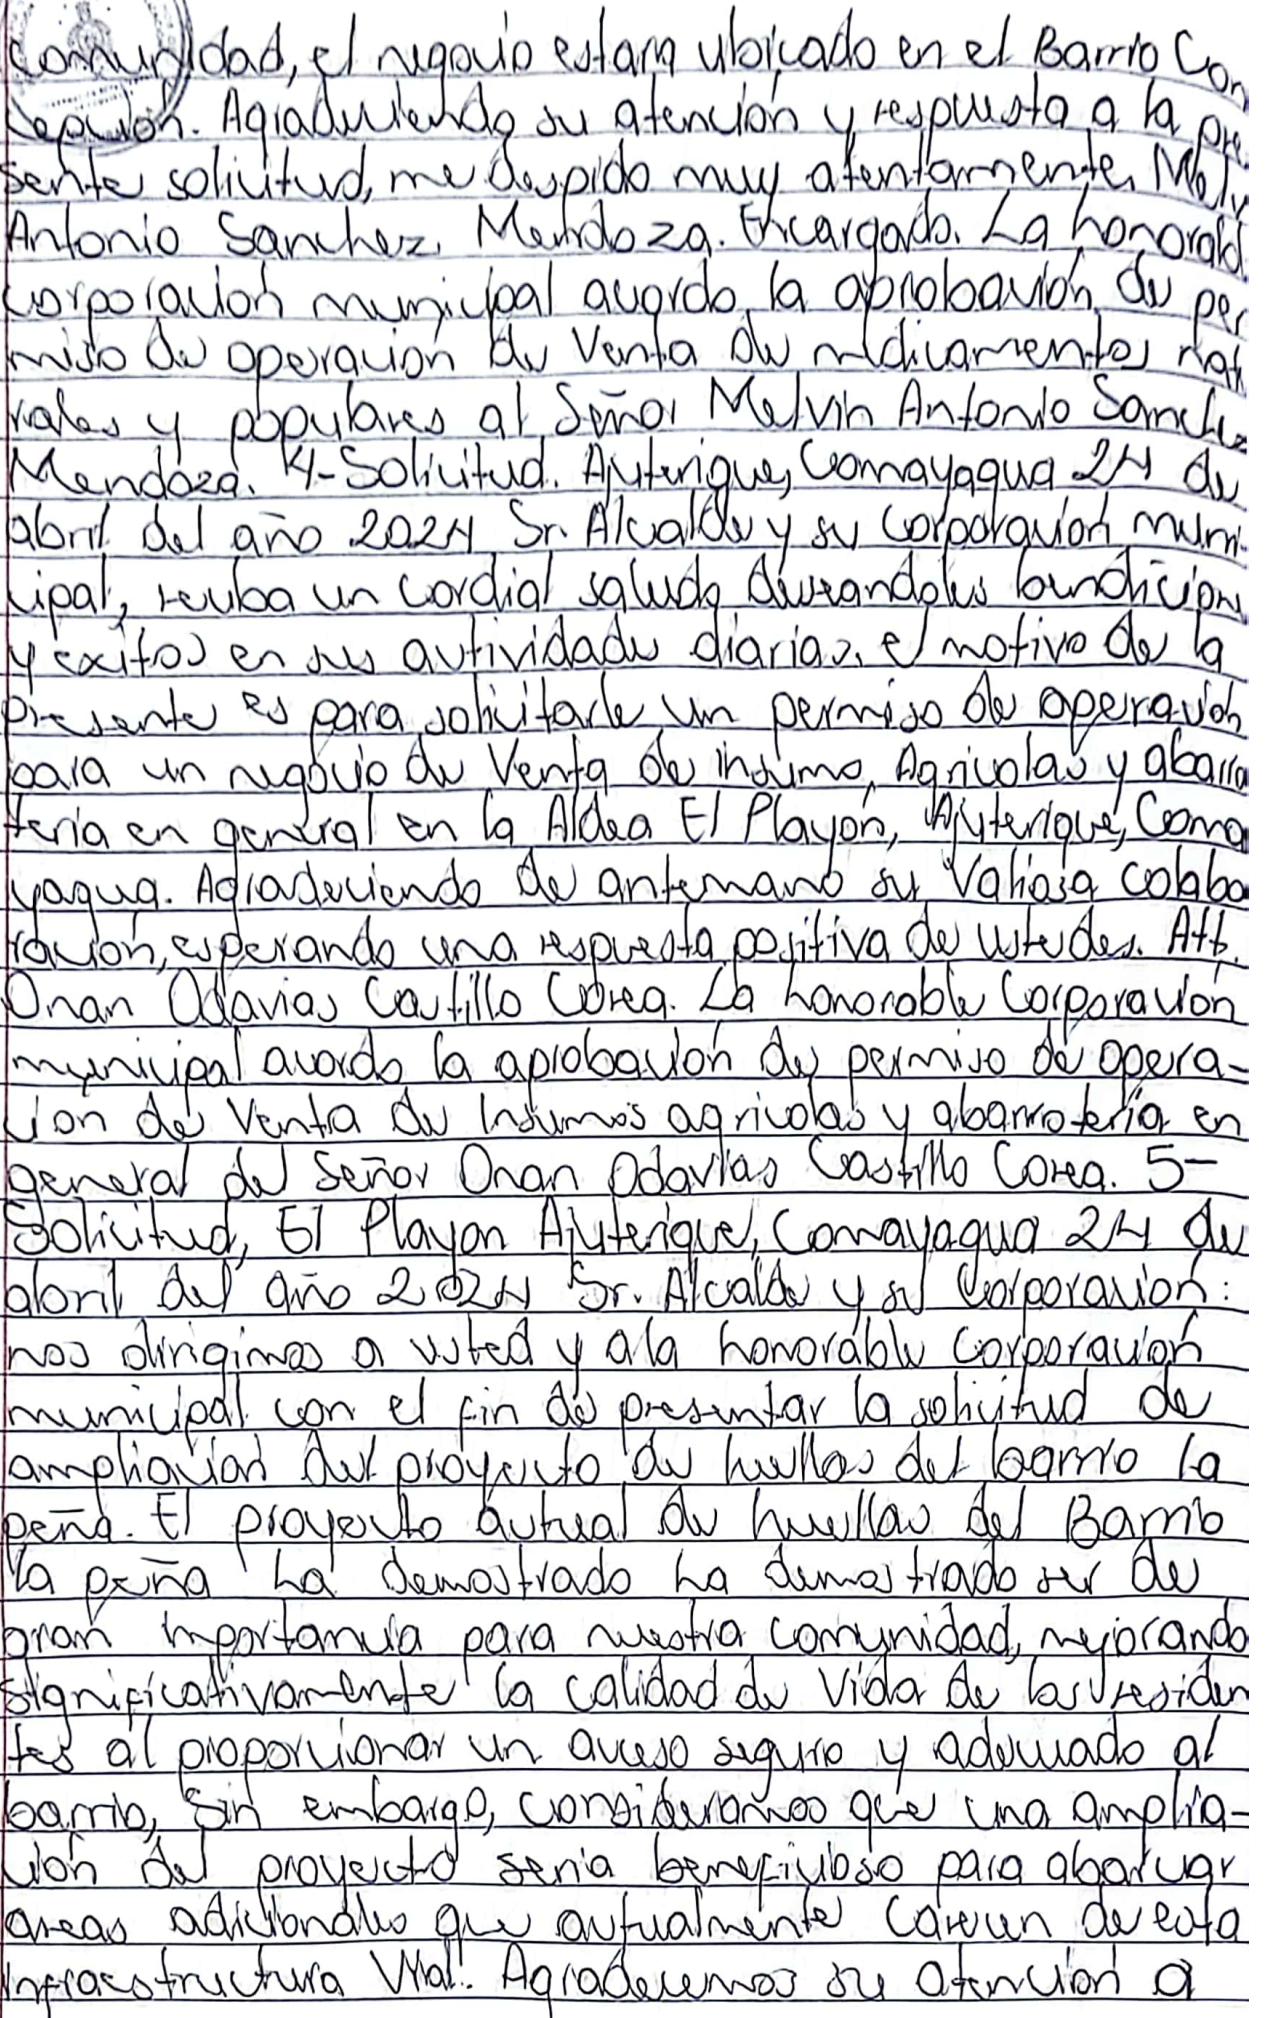 comunidad, el negocio estara ubicado en el Barrio Con
cepcion. Agradeciendo su atención y respuesta a la pre
sente solicitud, me despido muy atentamente, Melv
Antonio Sanchez Mendoza. Encargado. La honorabl
corporación municipal acordo la aprobación de per
miso de operación de Venta de medicamentos natu
rales y populares al Señor Melvin Antonio Sanchez
Mendoza. 4-Solicitud. Ajuterique, Comayagua 24 de
abril del año 2024 Sr. Alcalde y su Corporación muni-
cipal, reciba un cordial saludo deseandoles bendicion
y exitos en sus actividades diarias, el motivo de la
presente es para solicitarle un permiso de operación
para un negocio de Venta de insumo, Agricolas y abarro
teria en general en la Aldea El Playón, Ajuterique, Coma
yagua. Agradeciendo de antemano su Valiosa colabo
ración, esperando una respuesta positiva de ustedes. Att.
Onan Odavias Castillo Corea. La honorable Corporación
municipal acordo la aprobación de permiso de opera-
cion de Venta de Insumos agricolas y abarroteria en
general del Señor Onan Odavias Castillo Corea. 5-
Solicitud, El Playon Ajuterique, Comayagua 24 de
abril del año 2024 Sr. Alcalde y su Corporación:
nos dirigimos a usted y a la honorable Corporación
municipal con el fin de presentar la solicitud de
ampliación del proyecto de huellas del barrio la
peña. El proyecto actual de huellas del Barrio
la peña ha demostrado ha demostrado ser de
gran importancia para nuestra comunidad, mejorando
significativamente la calidad de Vida de los residen
tes al proporcionar un acceso seguro y adecuado al
barrio, Sin embargo, consideramos que una amplia-
ción del proyecto seria beneficioso para abarcar
areas adicionales que actualmente carecen de esta
infraestructura Vital. Agradecemos su atención a